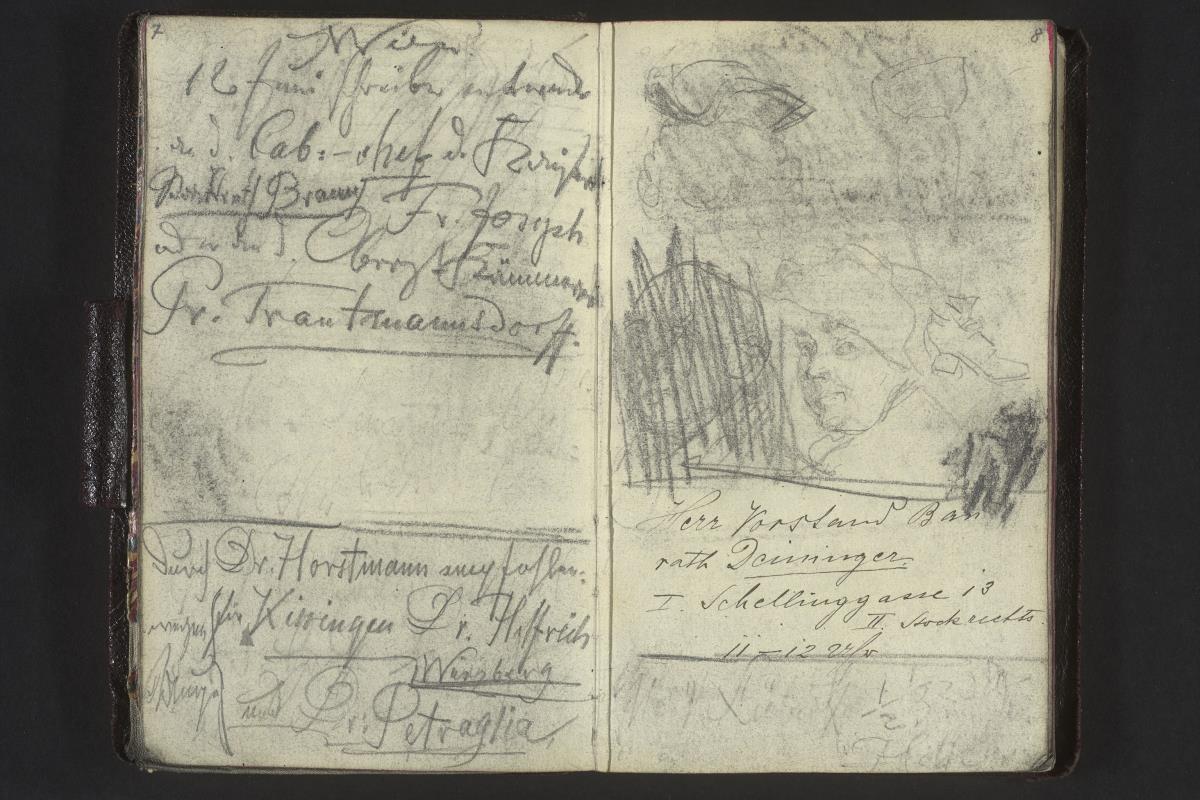 7
Wien
12 Juni schreiben entweder
an d. Cab:-chef d. Kaisers
Braun Fr. Joseph
oder an d. Oberst Kämmerer
Fr. Trautmannsdorff.
Durch Dr. Horstmann empfohlen.
wegen für Kissingen Dr. Helfreich
Würzburg
und Dr. Petraglia,
8
Herr Vorstand Bau
rath Deininger.
I. Schellinggasse 13
II. Stock rechts.
11 – 12 Uhr
1/2